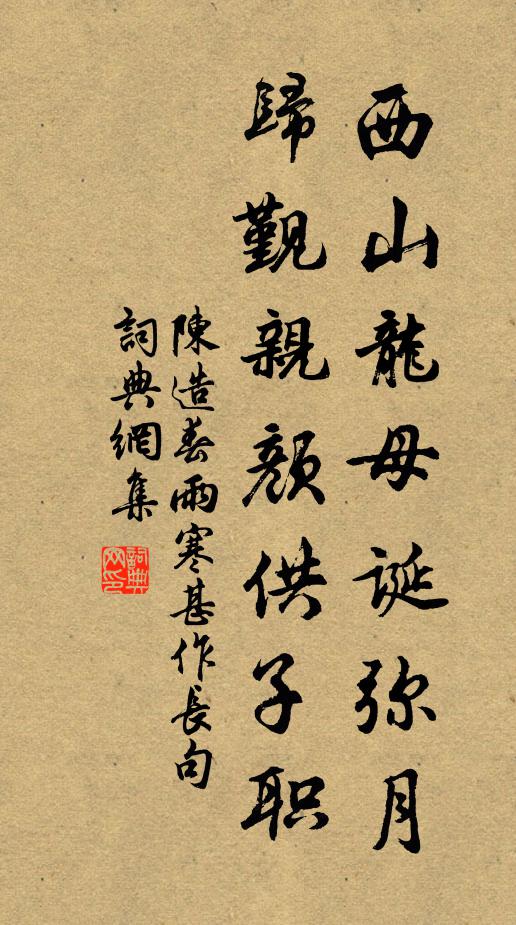 西山龍母诞弥月
歸觐親颜供子职
陳造春雨寒甚作長句
詞典網集
詞典網印